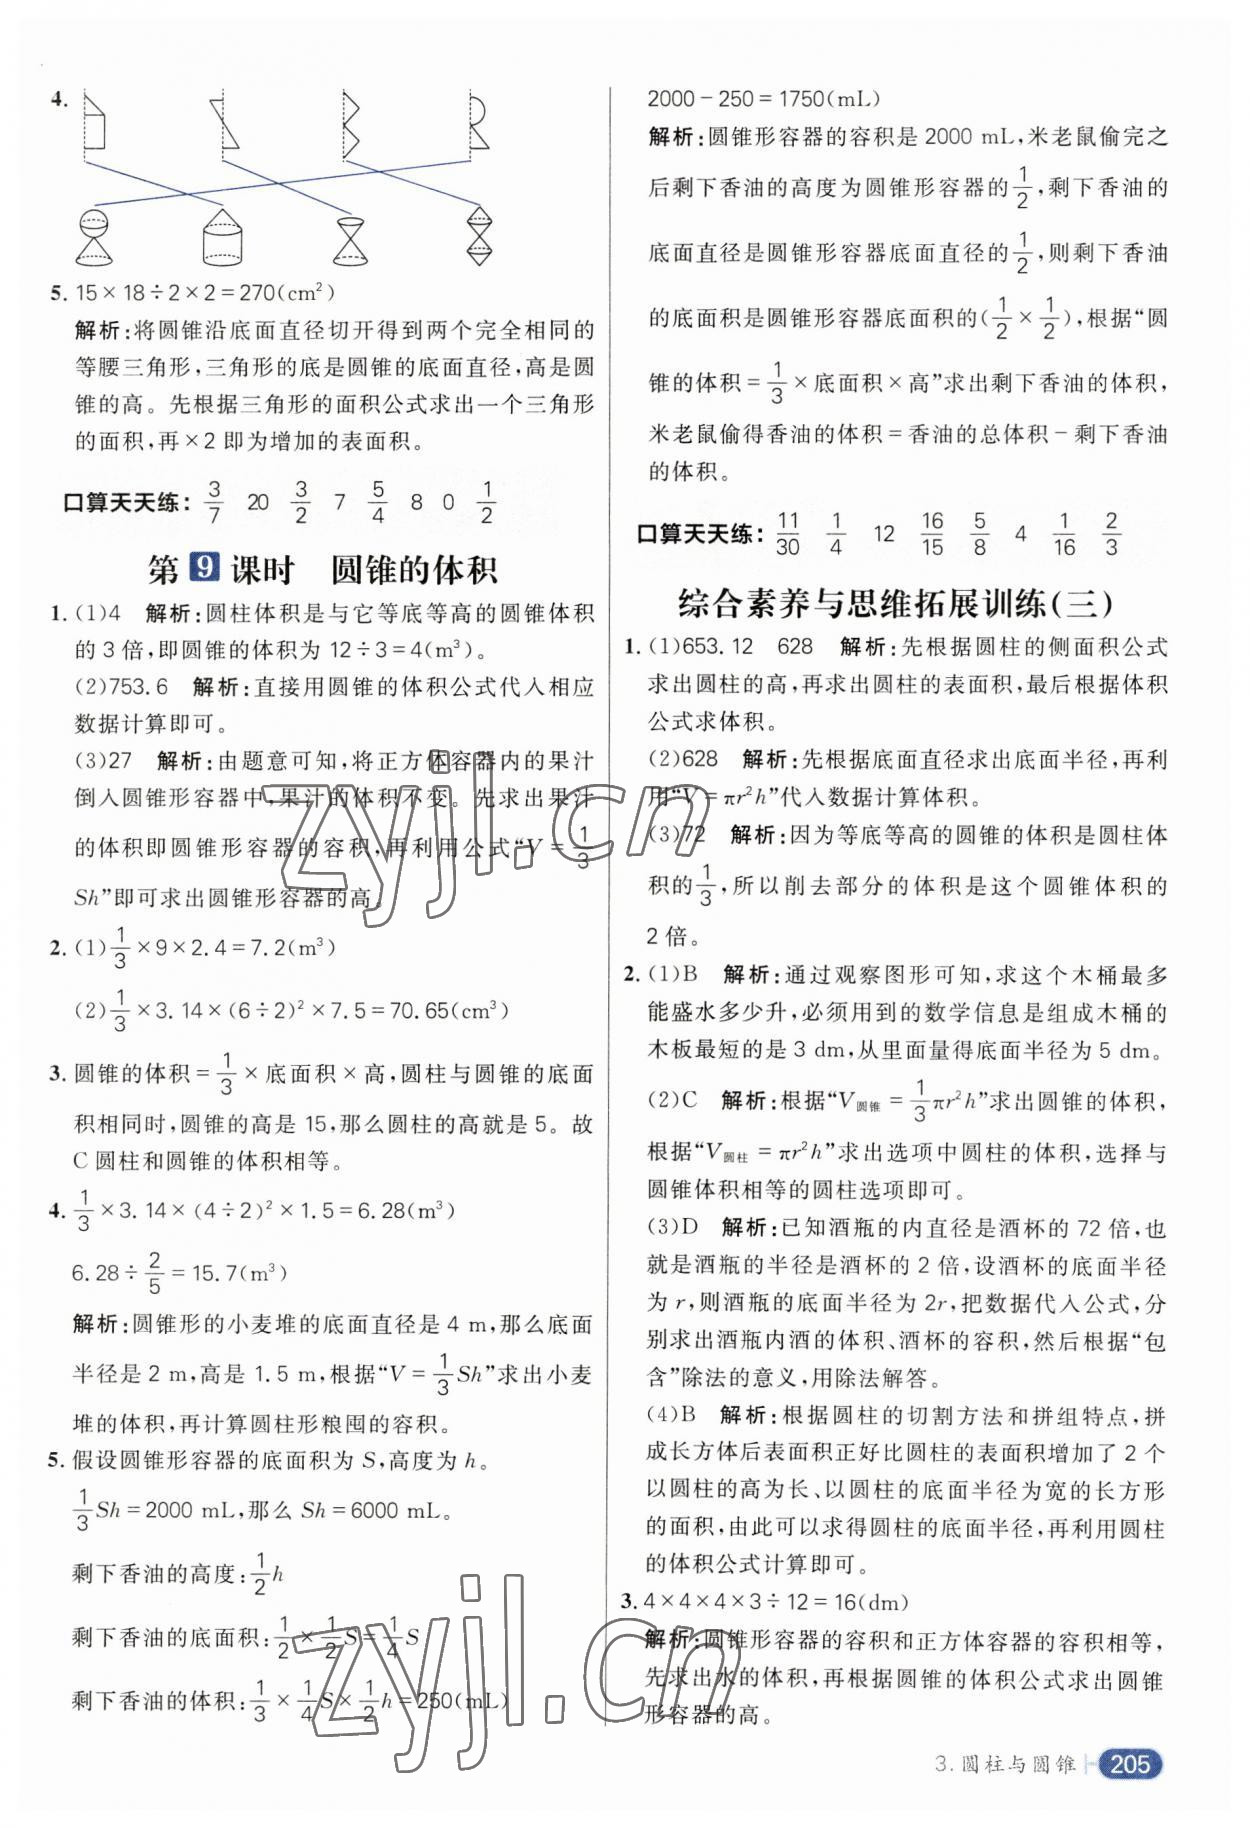 4.
5. 15×18÷2×2=270(cm²)
解析:将圆锥沿底面直径切开得到两个完全相同的
等腰三角形,三角形的底是圆锥的底面直径,高是圆
锥的高。先根据三角形的面积公式求出一个三角形
的面积,再×2 即为增加的表面积。
口算天天练: 3/7 20 3/2 7 5/4 8 0 1/2
第9课时 圆锥的体积
1. (1)4 解析:圆柱体积是与它等底等高的圆锥体积
的 3 倍,即圆锥的体积为 12÷3=4(m³)。
(2)753.6 解析:直接用圆锥的体积公式代入相应
数据计算即可。
(3)27 解析:由题意可知,将正方体容器内的果汁
倒入圆锥形容器中,果汁的体积不变。先求出果汁
的体积即圆锥形容器的容积,再利用公式“V=1/3
Sh”即可求出圆锥形容器的高。
2. (1)1/3×9×2.4=7.2(m³)
(2)1/3×3.14×(6÷2)²×7.5=70.65(cm³)
3. 圆锥的体积=1/3×底面积×高,圆柱与圆锥的底面
积相同时,圆锥的高是 15,那么圆柱的高就是 5。故
C 圆柱和圆锥的体积相等。
4. 1/3×3.14×(4÷2)²×1.5=6.28(m³)
6.28÷2/5=15.7(m³)
解析:圆锥形的小麦堆的底面直径是 4 m,那么底面
半径是 2 m,高是 1.5 m,根据“V=1/3Sh”求出小麦
堆的体积,再计算圆柱形粮囤的容积。
5. 假设圆锥形容器的底面积为 S,高度为 h。
1/3Sh=2000 mL,那么 Sh=6000 mL。
剩下香油的高度:1/2h
剩下香油的底面积:1/2×1/2S=1/4S
剩下香油的体积:1/3×1/4S×1/2h=250(mL)
2000-250=1750(mL)
解析:圆锥形容器的容积是 2000 mL,米老鼠偷完之
后剩下香油的高度为圆锥形容器的1/2,剩下香油的
底面直径是圆锥形容器底面直径的1/2,则剩下香油
的底面积是圆锥形容器底面积的(1/2×1/2),根据“圆
锥的体积=1/3×底面积×高”求出剩下香油的体积,
米老鼠偷得香油的体积=香油的总体积-剩下香油
的体积。
口算天天练: 11/30 1/4 12 16/15 5/8 4 1/16 2/3
综合素养与思维拓展训练(三)
1. (1)653.12 628 解析:先根据圆柱的侧面积公式
求出圆柱的高,再求出圆柱的表面积,最后根据体积
公式求体积。
(2)628 解析:先根据底面直径求出底面半径,再利
用“V=πr²h”代入数据计算体积。
(3)72 解析:因为等底等高的圆锥的体积是圆柱体
积的1/3,所以削去部分的体积是这个圆锥体积的
2 倍。
2. (1)B 解析:通过观察图形可知,求这个木桶最多
能盛水多少升,必须用到的数学信息是组成木桶的
木板最短的是 3 dm,从里面量得底面半径为 5 dm。
(2)C 解析:根据“V圆锥=1/3πr²h”求出圆锥的体积,
根据“V圆柱=πr²h”求出选项中圆柱的体积,选择与
圆锥体积相等的圆柱选项即可。
(3)D 解析:已知酒瓶的内直径是酒杯的 72 倍,也
就是酒瓶的半径是酒杯的 2 倍,设酒杯的底面半径
为 r,则酒瓶的底面半径为 2r,把数据代入公式,分
别求出酒瓶内酒的体积、酒杯的容积,然后根据“包
含”除法的意义,用除法解答。
(4)B 解析:根据圆柱的切割方法和拼组特点,拼
成长方体后表面积正好比圆柱的表面积增加了 2 个
以圆柱的高为长、以圆柱的底面半径为宽的长方形
的面积,由此可以求得圆柱的底面半径,再利用圆柱
的体积公式计算即可。
3. 4×4×4×3÷12=16(dm)
解析:圆锥形容器的容积和正方体容器的容积相等,
先求出水的体积,再根据圆锥的体积公式求出圆锥
形容器的高。
3.圆柱与圆锥 205
zyjl.cn
zyjl.cn